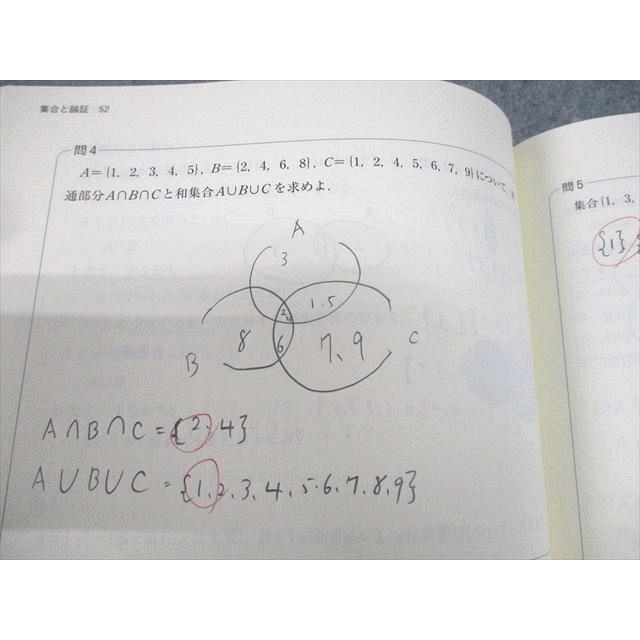 集合と論証 52
問4
A={1, 2, 3, 4, 5}, B={2, 4, 6, 8}, C={1, 2, 4, 5, 6, 7, 9}について,
通部分A∩B∩Cと和集合A∪B∪Cを求めよ.
A
3
1.5
2
4
8
6
7、9
B
C
A∩B∩C={2、4}
A∪B∪C={1、2、3、4、5、6、7、8、9}
問5
集合{1, 3,
{1}